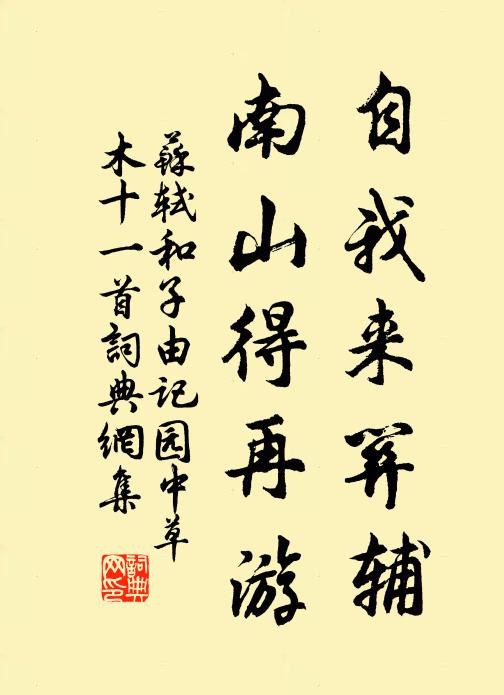 自我来关辅
南山得再游
蘇轼和子由记园中草
木十一首詞典網集
詞典
网印